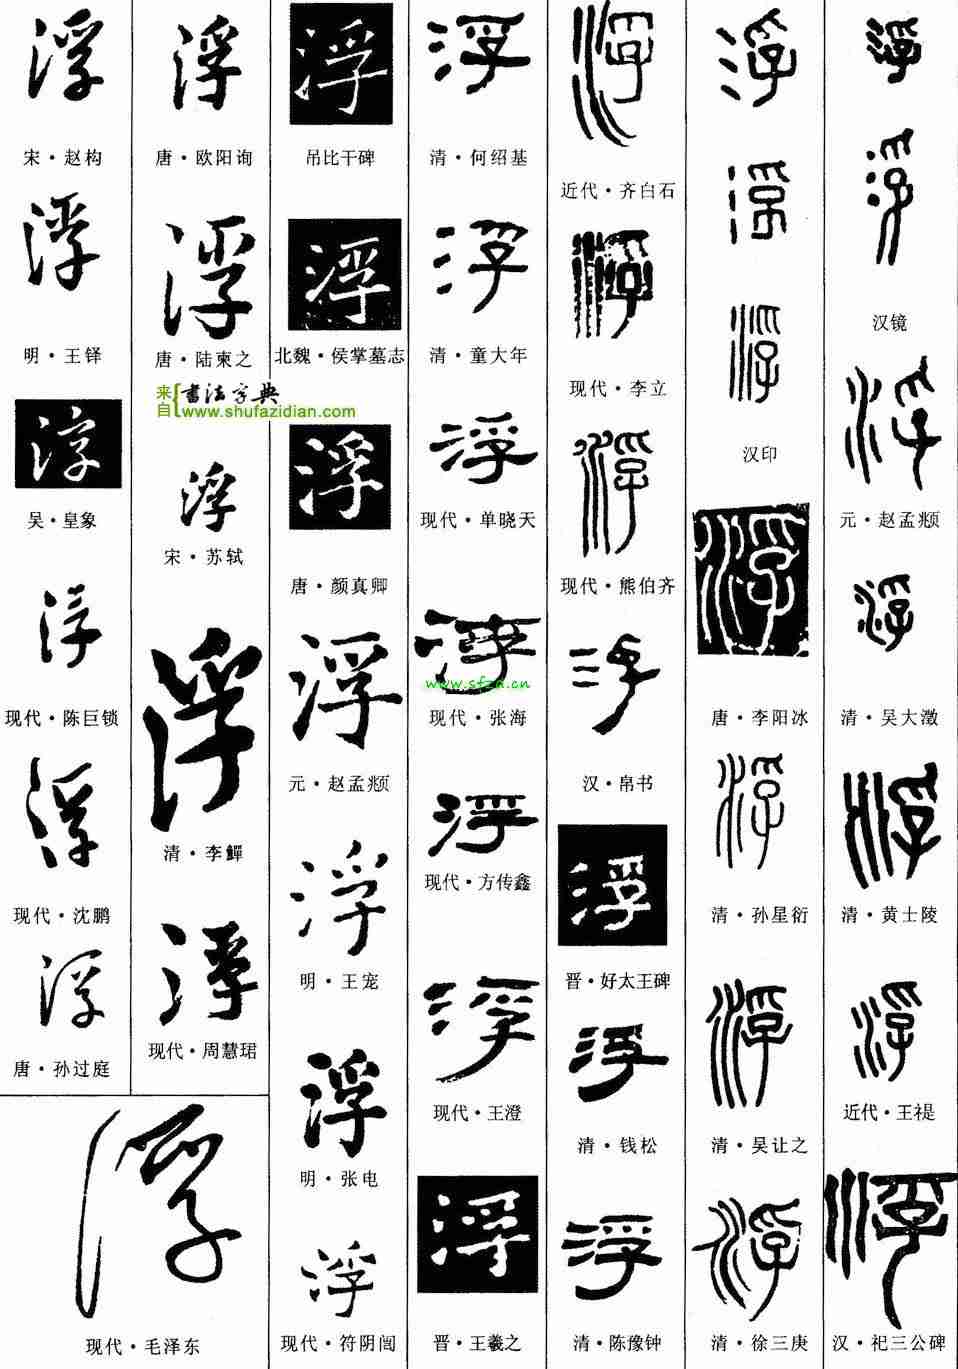 浮
宋·赵构
浮
明·王铎
浮
吴·皇象
浮
现代·陈巨锁
浮
现代·沈鹏
浮
唐·孙过庭
浮
现代·毛泽东
浮
唐·欧阳询
浮
唐·陆柬之
来自{书法字典
www.shufazidian.com
浮
宋·苏轼
浮
清·李鱓
浮
现代·周慧珺
浮
吊比干碑
浮
北魏·侯掌墓志
浮
唐·颜真卿
浮
元·赵孟頫
浮
明·王宠
浮
明·张电
浮
现代·符阴闿
浮
清·何绍基
浮
清·童大年
浮
现代·单晓天
浮
www.sfzd.cn
现代·张海
浮
现代·方传鑫
浮
现代·王澄
浮
晋·王羲之
浮
近代·齐白石
浮
现代·李立
浮
现代·熊伯齐
浮
汉·帛书
浮
晋·好太王碑
浮
清·钱松
浮
清·陈豫钟
浮
浮
浮
汉印
浮
唐·李阳冰
浮
清·孙星衍
浮
清·吴让之
浮
清·徐三庚
浮
浮
汉镜
浮
元·赵孟頫
浮
清·吴大澂
浮
清·黄士陵
浮
近代·王禔
浮
汉·祀三公碑